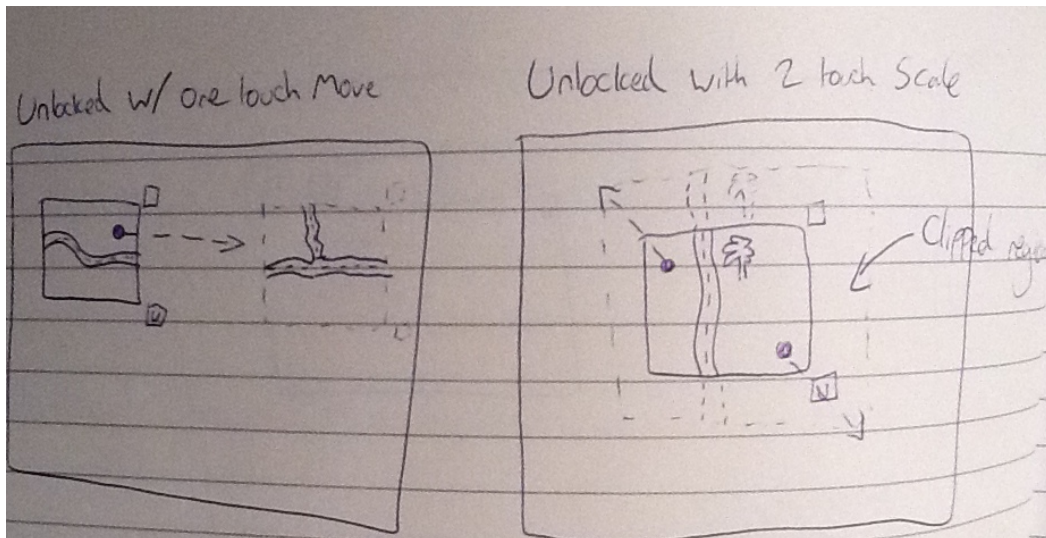 Unlocked w/ one touch Move
Unlocked with 2 touch Scale
Clipped
U